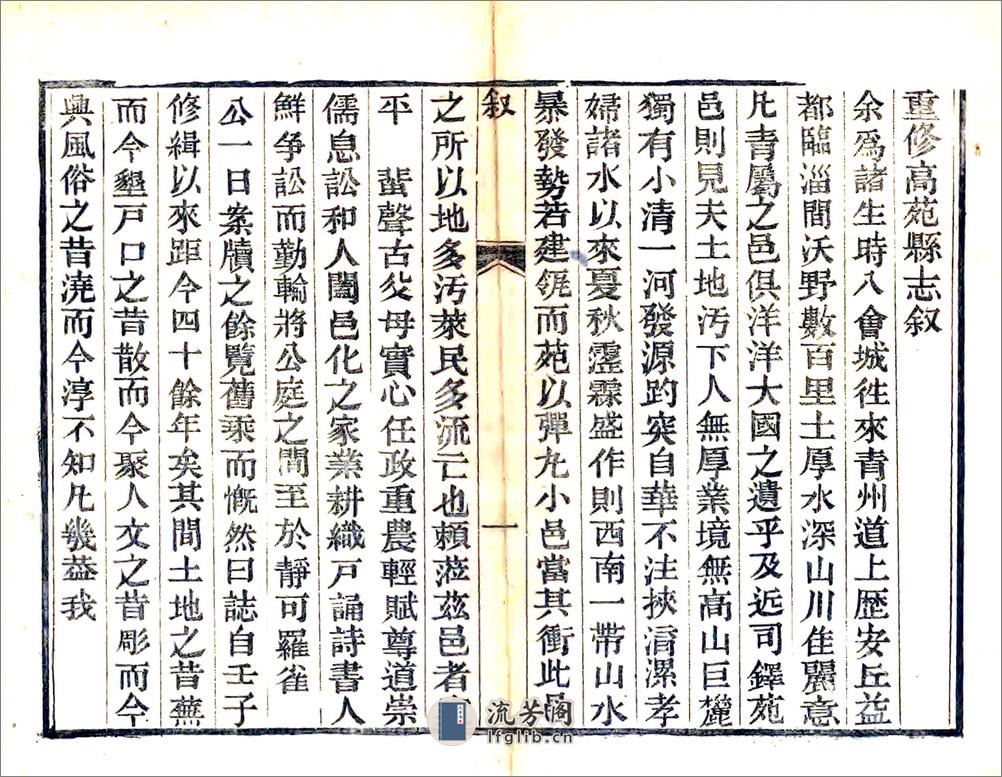 重修高苑縣志叙
余爲諸生時入會城徃來青州道上歴安丘益
都臨淄間沃野數百里土厚水深山川佳麗意
凡青屬之邑俱洋洋大國之遺乎及近司鐸苑
邑則見夫土地汚下人無厚業境無高山巨麓
獨有小清一河發源趵突自華不注挾淯漯孝
婦諸水以來夏秋霪霖盛作則西南一帶山水
暴發勢若建瓴而苑以彈丸小邑當其衝此邑
叙
一
之所以地多汚萊民多流亡也賴蒞茲邑者
平 蜚聲古父母實心任政重農輕賦尊道崇
儒息訟和人闔邑化之家業耕織戸誦詩書人
鮮争訟而勤輸將公庭之間至於靜可羅雀
公一日案牘之餘覽舊乘而慨然曰誌自壬子
修緝以來距今四十餘年矣其間土地之昔蕪
而今墾戸口之昔散而今聚人文之昔彫而今
興風俗之昔澆而今淳不知凡幾葢我
流芳阁
lfglib.cn